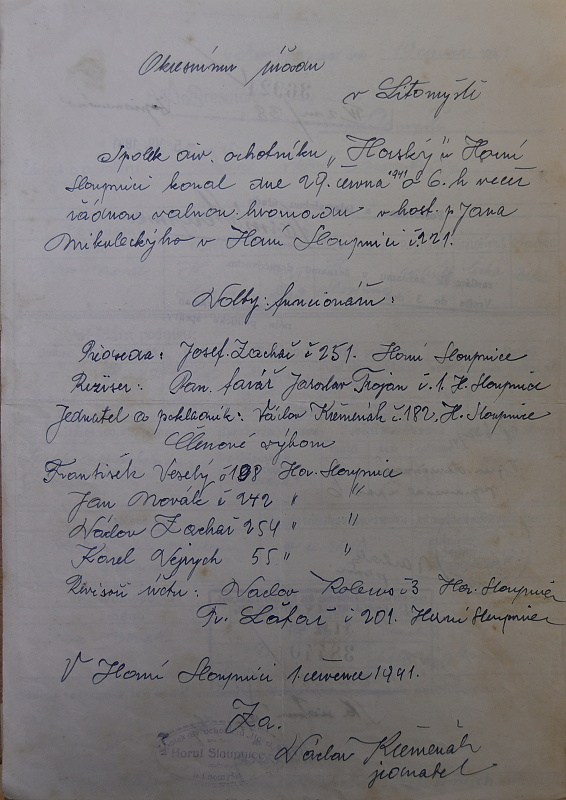 Okresnímu úřadu
v Litomyšli
Spolek div. ochotníku „Horský" v Horní
Sloupnici konal dne 29. června 1941 o 6. h večer
řádnou valnou hromadu v host. p Jana
Mikuleckýho v Horní Sloupnici č. 221.
Volby funcionářu:
Předseda: Josef Zachař č 251. Horní Sloupnice
Režiser: Pan. farář Jaroslav Trojan č. 1. H. Sloupnice
Jednatel a pokladník: Václav Křemenák č. 182, H. Sloupnice
Členové výboru
František Veselý č 198 Hor. Sloupnice
Jan Novák č 242 " "
Václav Zachař 254 " "
Karel Vejrych 55 " "
Revisoři účtu: Václav č 3 Hor. Sloupnice
Fr. č 201. Horní Sloupnice
V Horní Sloupnici 1. července 1941.
Za.
Václav Křemenák
jednatel
Horní Sloupnice